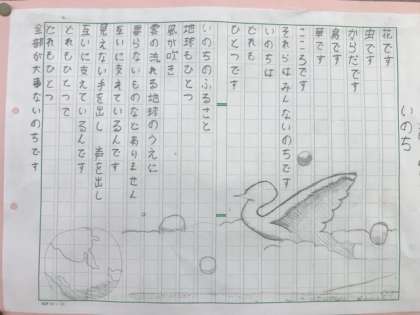 いのち
花です
虫です
からだです
鳥です
草です
こころです
それらはみんないのちです
いのちは
どれも
ひとつです
いのちのふるさと
地球もひとつ
風が吹き
雲の流れる地球のうえに
要らないものなどありません
互いに支えているんです
見えない手を出し 声を出し
互いに支えているんです
どれもひとつで
どれもひとつ
全部が大事ないのちです